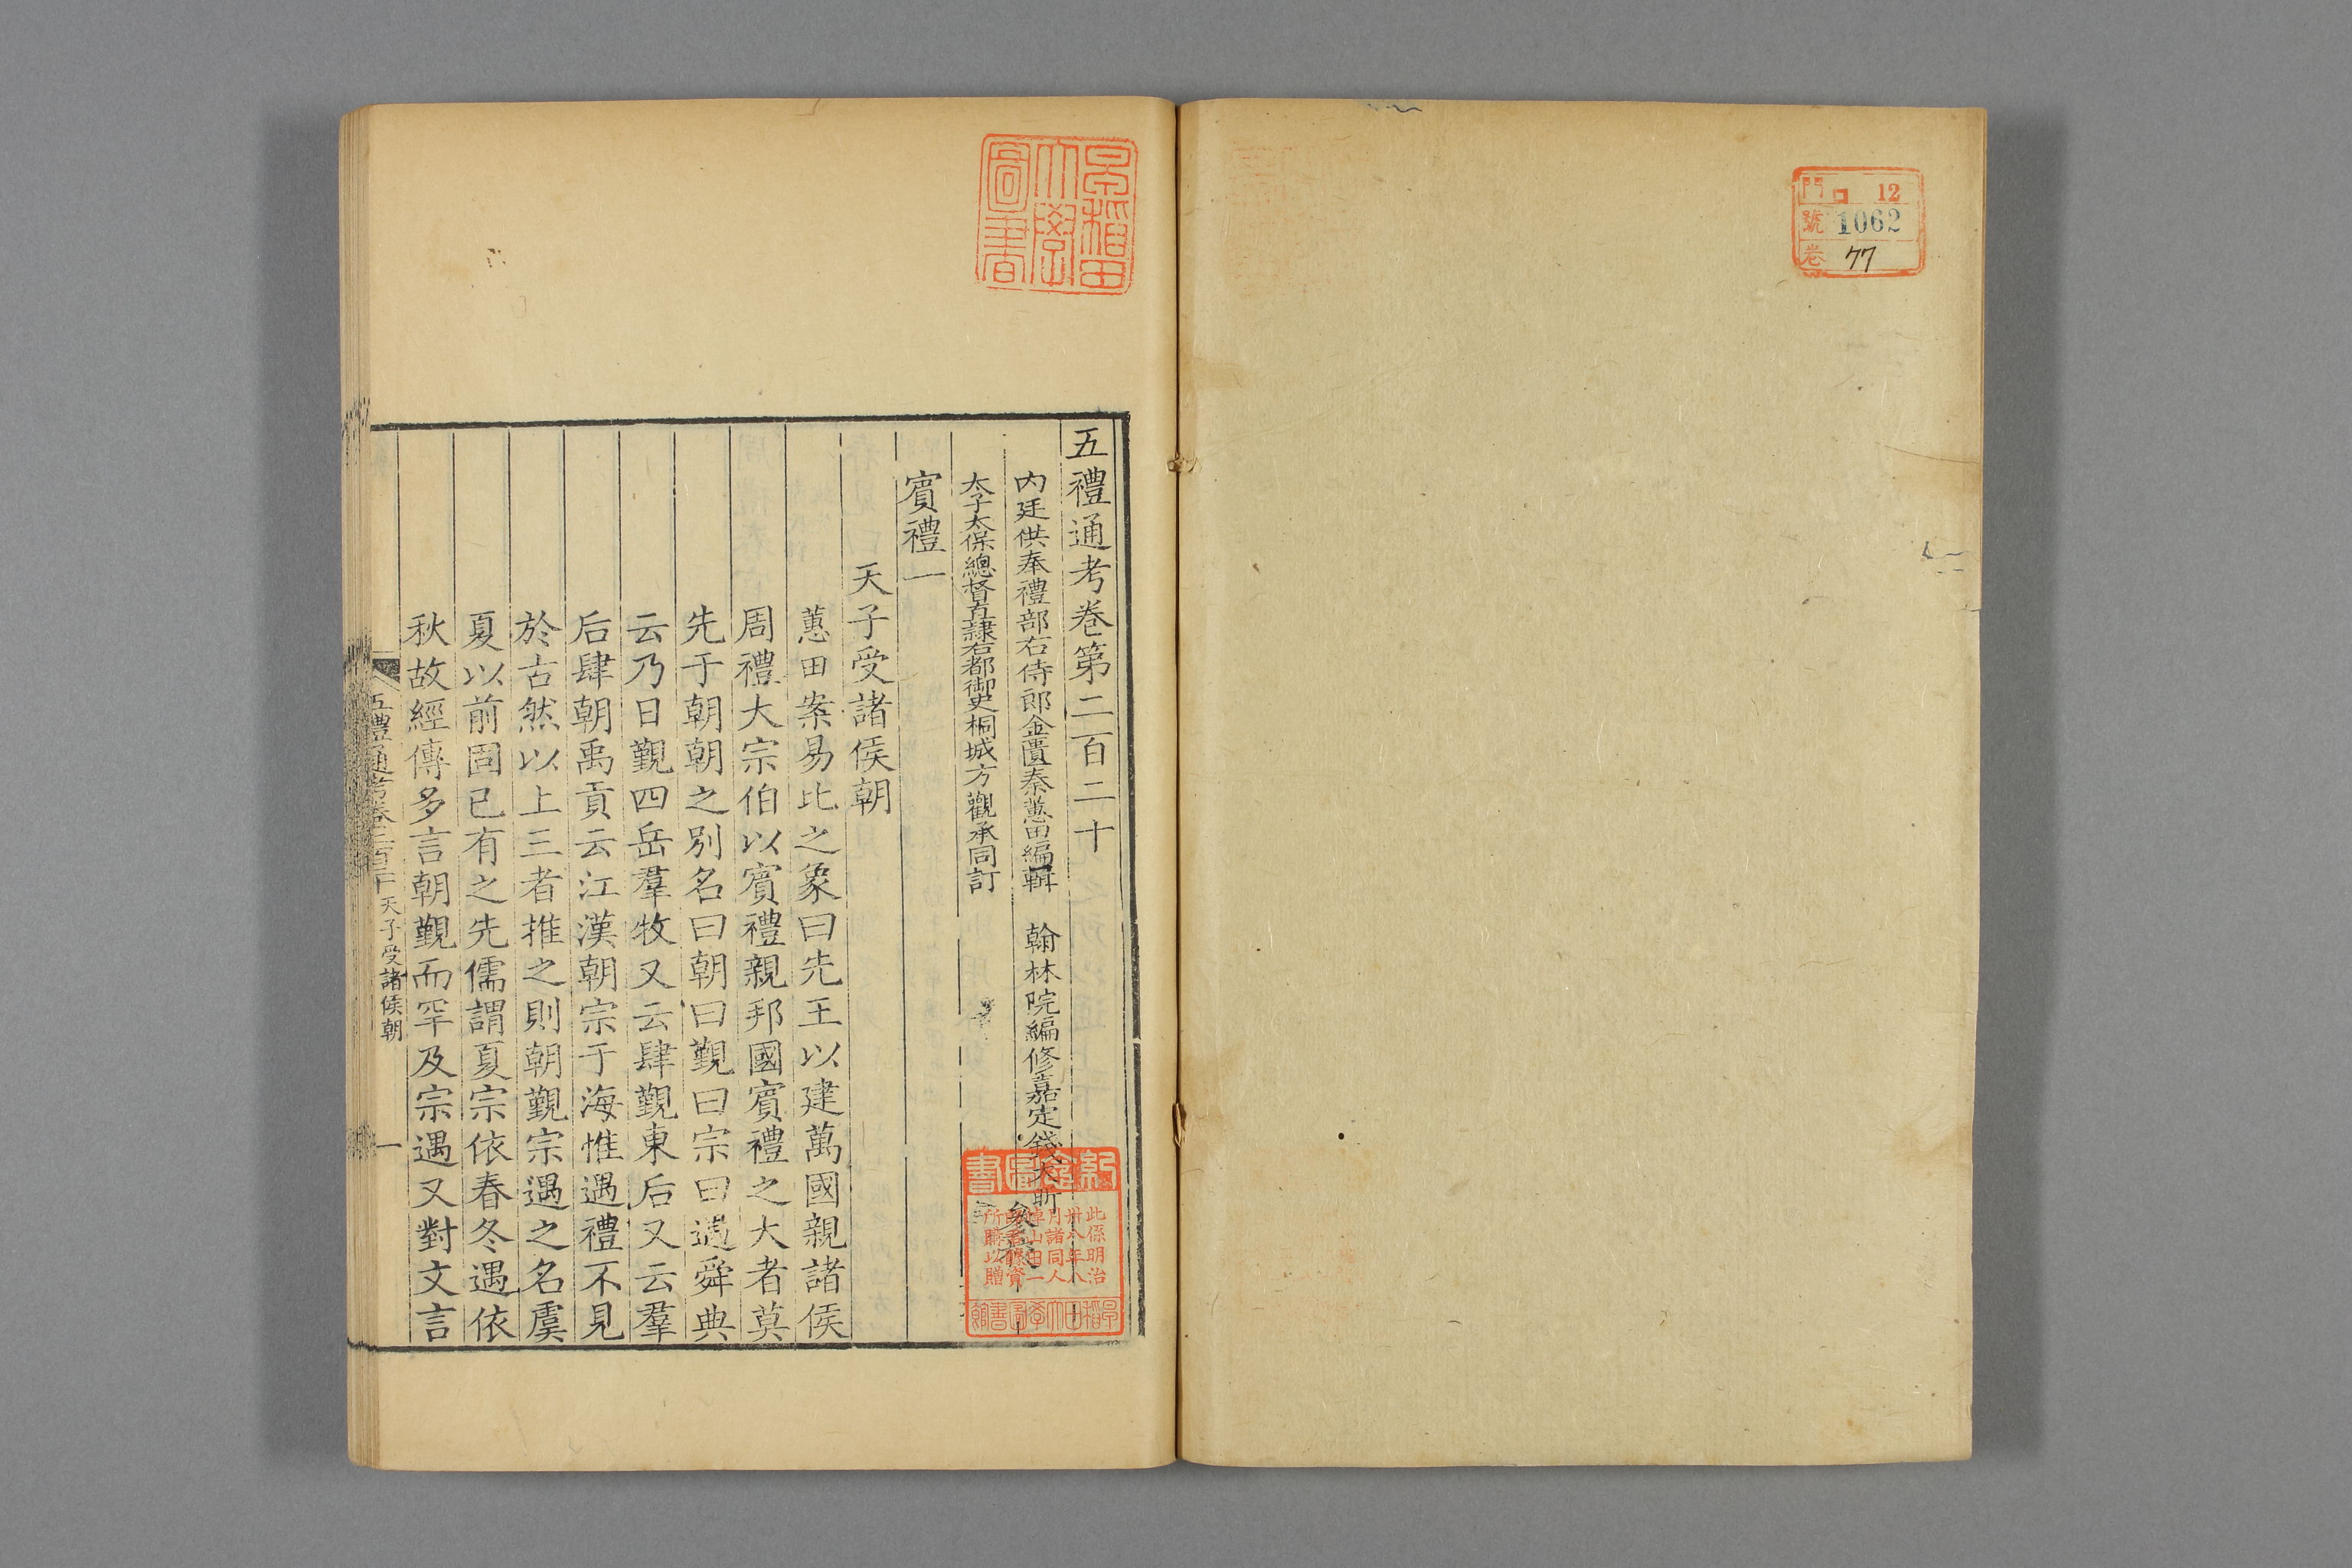 門 12
號 1062
卷 77
早稻田大學圖書
五禮通考卷第二百二十
内廷供奉禮部右侍郎金匱秦蕙田編輯 翰林院編修嘉定錢大昕
太子太保總督直隸右都御史桐城方觀承同訂
賓禮一
天子受諸侯朝
蕙田案易比之象曰先王以建萬國親諸侯
周禮大宗伯以賓禮親邦國賓禮之大者莫
先于朝朝之別名曰朝曰覲曰宗曰遇舜典
云乃日覲四岳羣牧又云肆覲東后又云羣
后肆朝禹貢云江漢朝宗于海惟遇禮不見
於古然以上三者推之則朝覲宗遇之名虞
夏以前固已有之先儒謂夏宗依春冬遇依
秋故經傳多言朝覲而罕及宗遇又對文言
五禮通考卷二百二十 天子受諸侯朝 一
此係明治
卅八年八
月諸同人
所購以贈